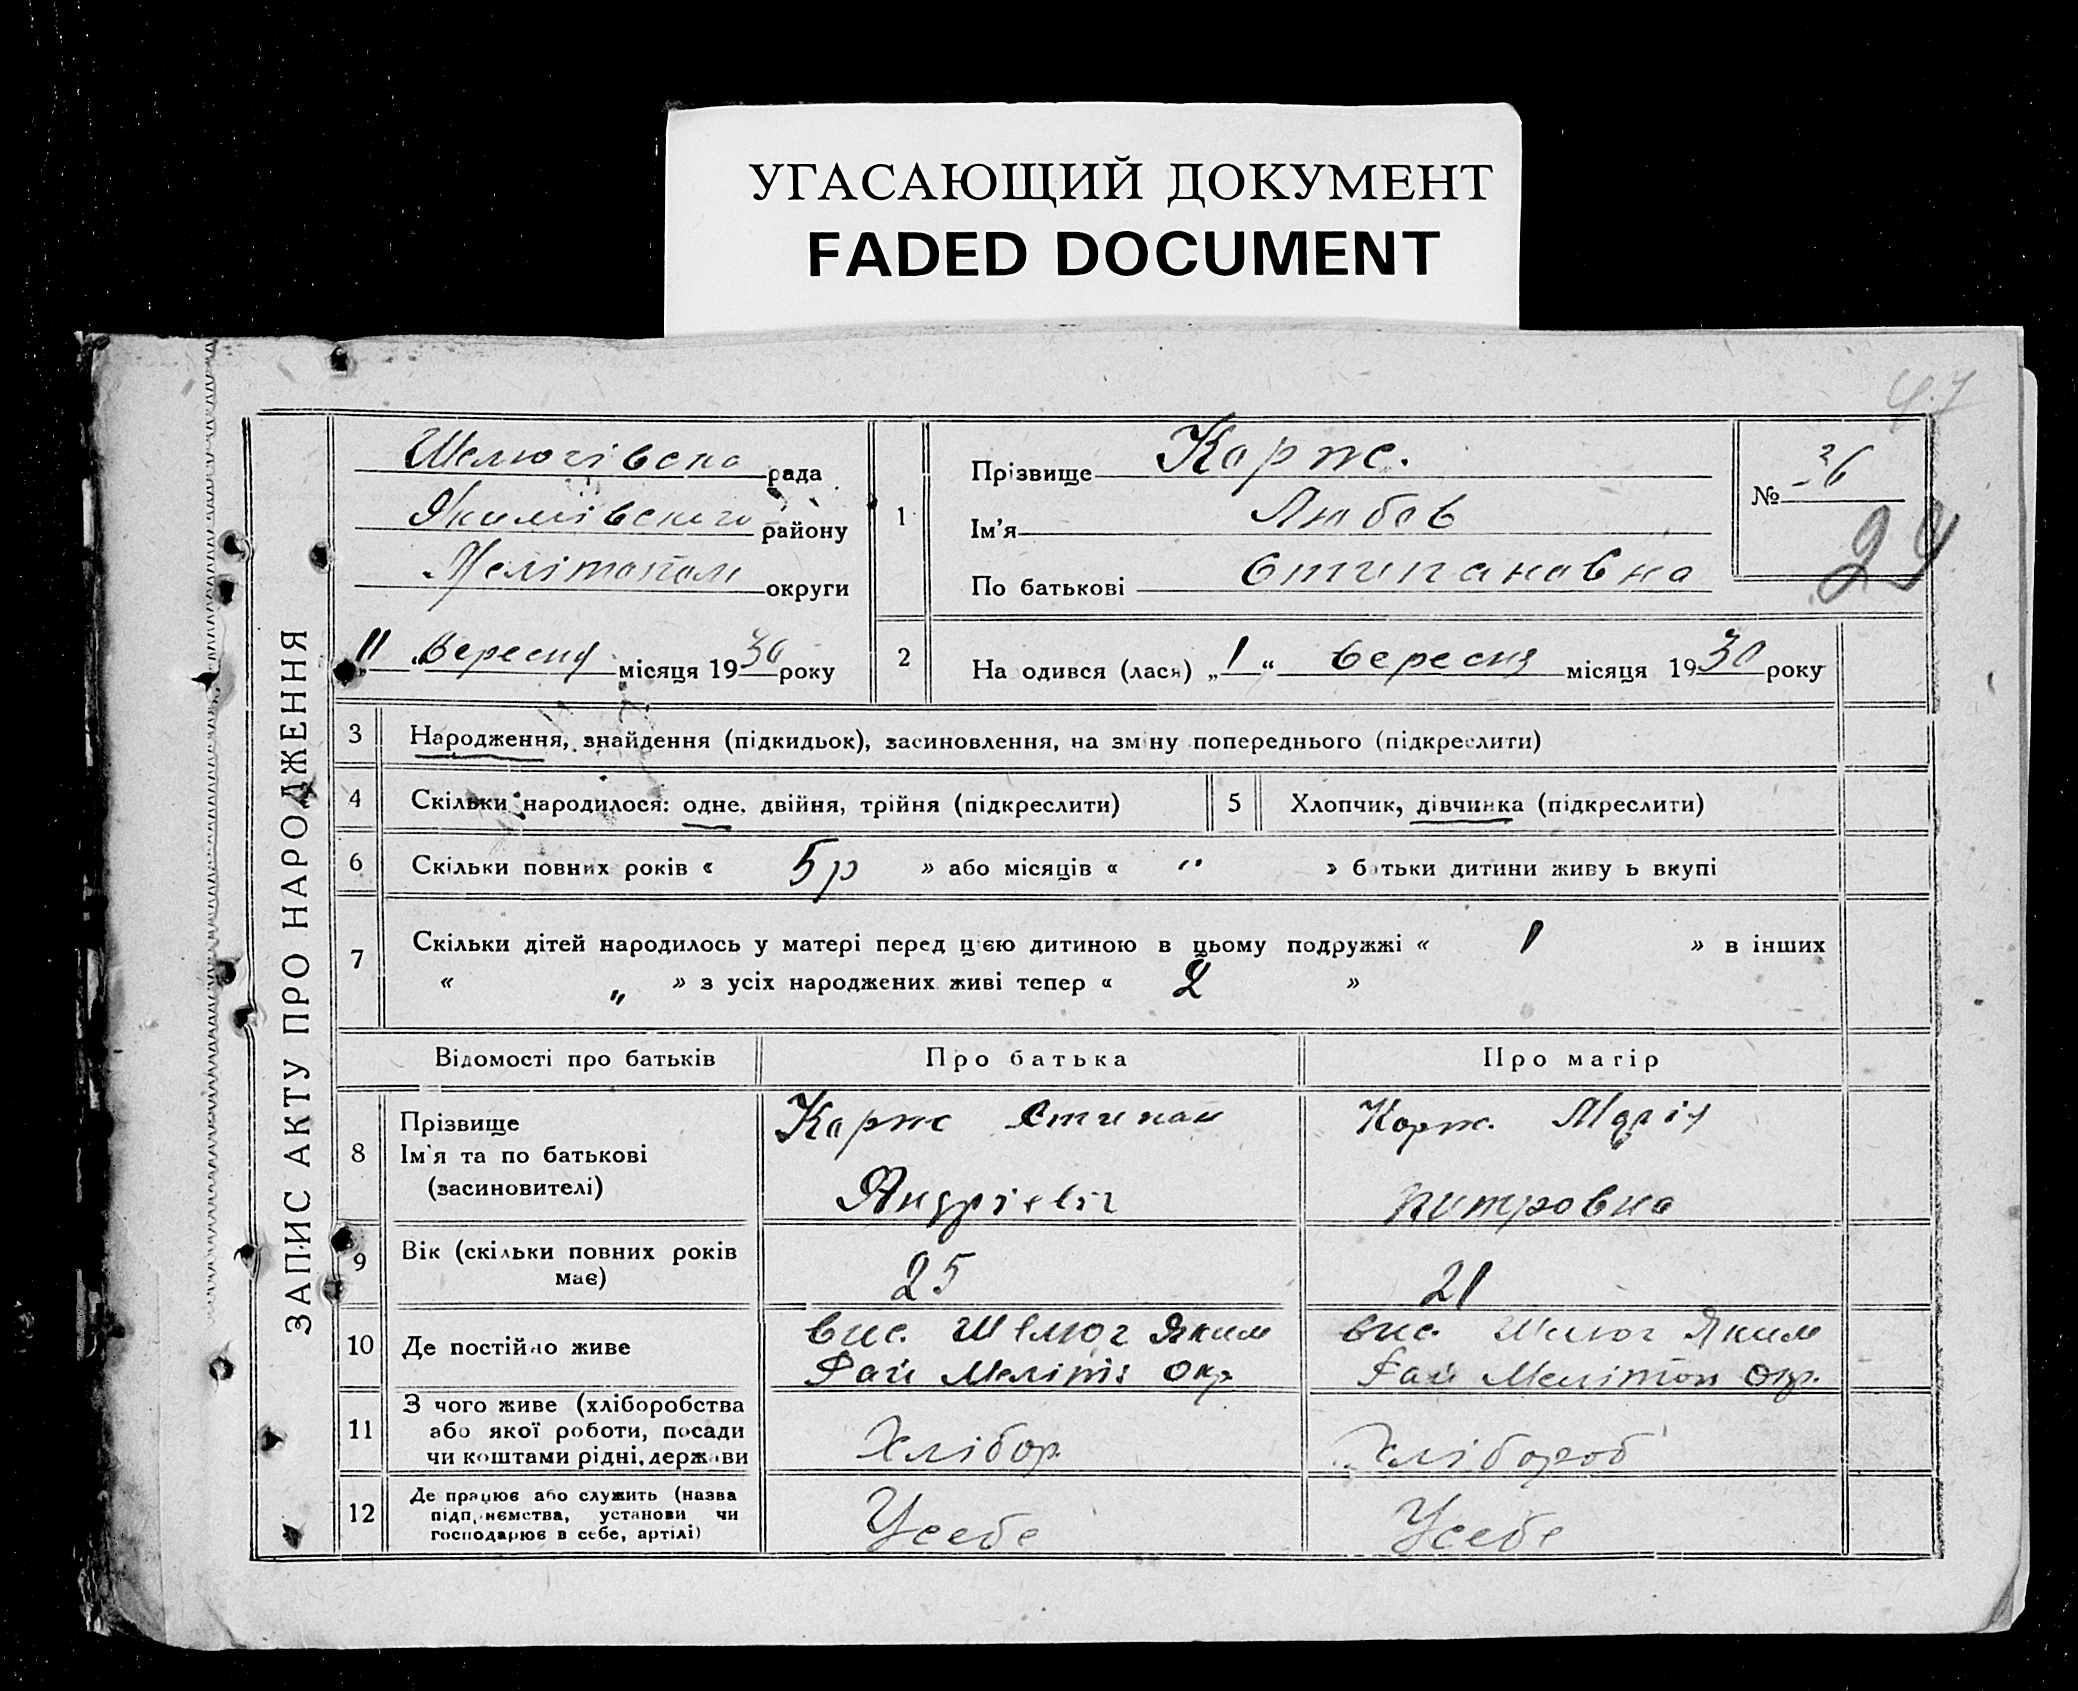 УГАСАЮЩИЙ ДОКУМЕНТ
FADED DOCUMENT
47
ЗАПИС АКТУ ПРО НАРОДЖЕННЯ
Шелюгівска рада
Якимівского району
Мелітопол округи
" 11 Вересня місяця 1930 року
1
Прізвище Корж.
Ім'я Любов
По батькові Стипановна
№ 26
29
2 На одився (лася) „1“ вересня місяця 1930 року
3 Народження, знайдення (підкидьок), засиновлення, на зміну попереднього (підкреслити)
4 Скільки народилося: одне, двійня, трійня (підкреслити) 5 Хлопчик, дівчинка (підкреслити)
6 Скільки повних років « 5 р » або місяців « " » батьки дитини живу ь вкупі
7 Скільки дітей народилось у матері перед цією дитиною в цьому подружжі « 1 » в інших
« „ » з усіх народжених живі тепер « 2 »
Відомості про батьків Про батька Про матір
8 Прізвище
Ім'я та по батькові
(засиновителі)
Корж Стипан
Яндрієвіч
Корж. Марія
питровна
9 Вік (скільки повних років
має)
25
21
10 Де постійно живе
вис. Шелюг Яким
Рай Меліт Окр
вис. Шелюг Яким
Рай Мелітоп Окр.
11 З чого живе (хліборобства
або якої роботи, посади
чи коштами рідні, держави
Хлібор
Хлібороб
12 Де працює або служить (назва
підприємства, установи чи
господарює в себе, артілі)
Усебе
Усебе